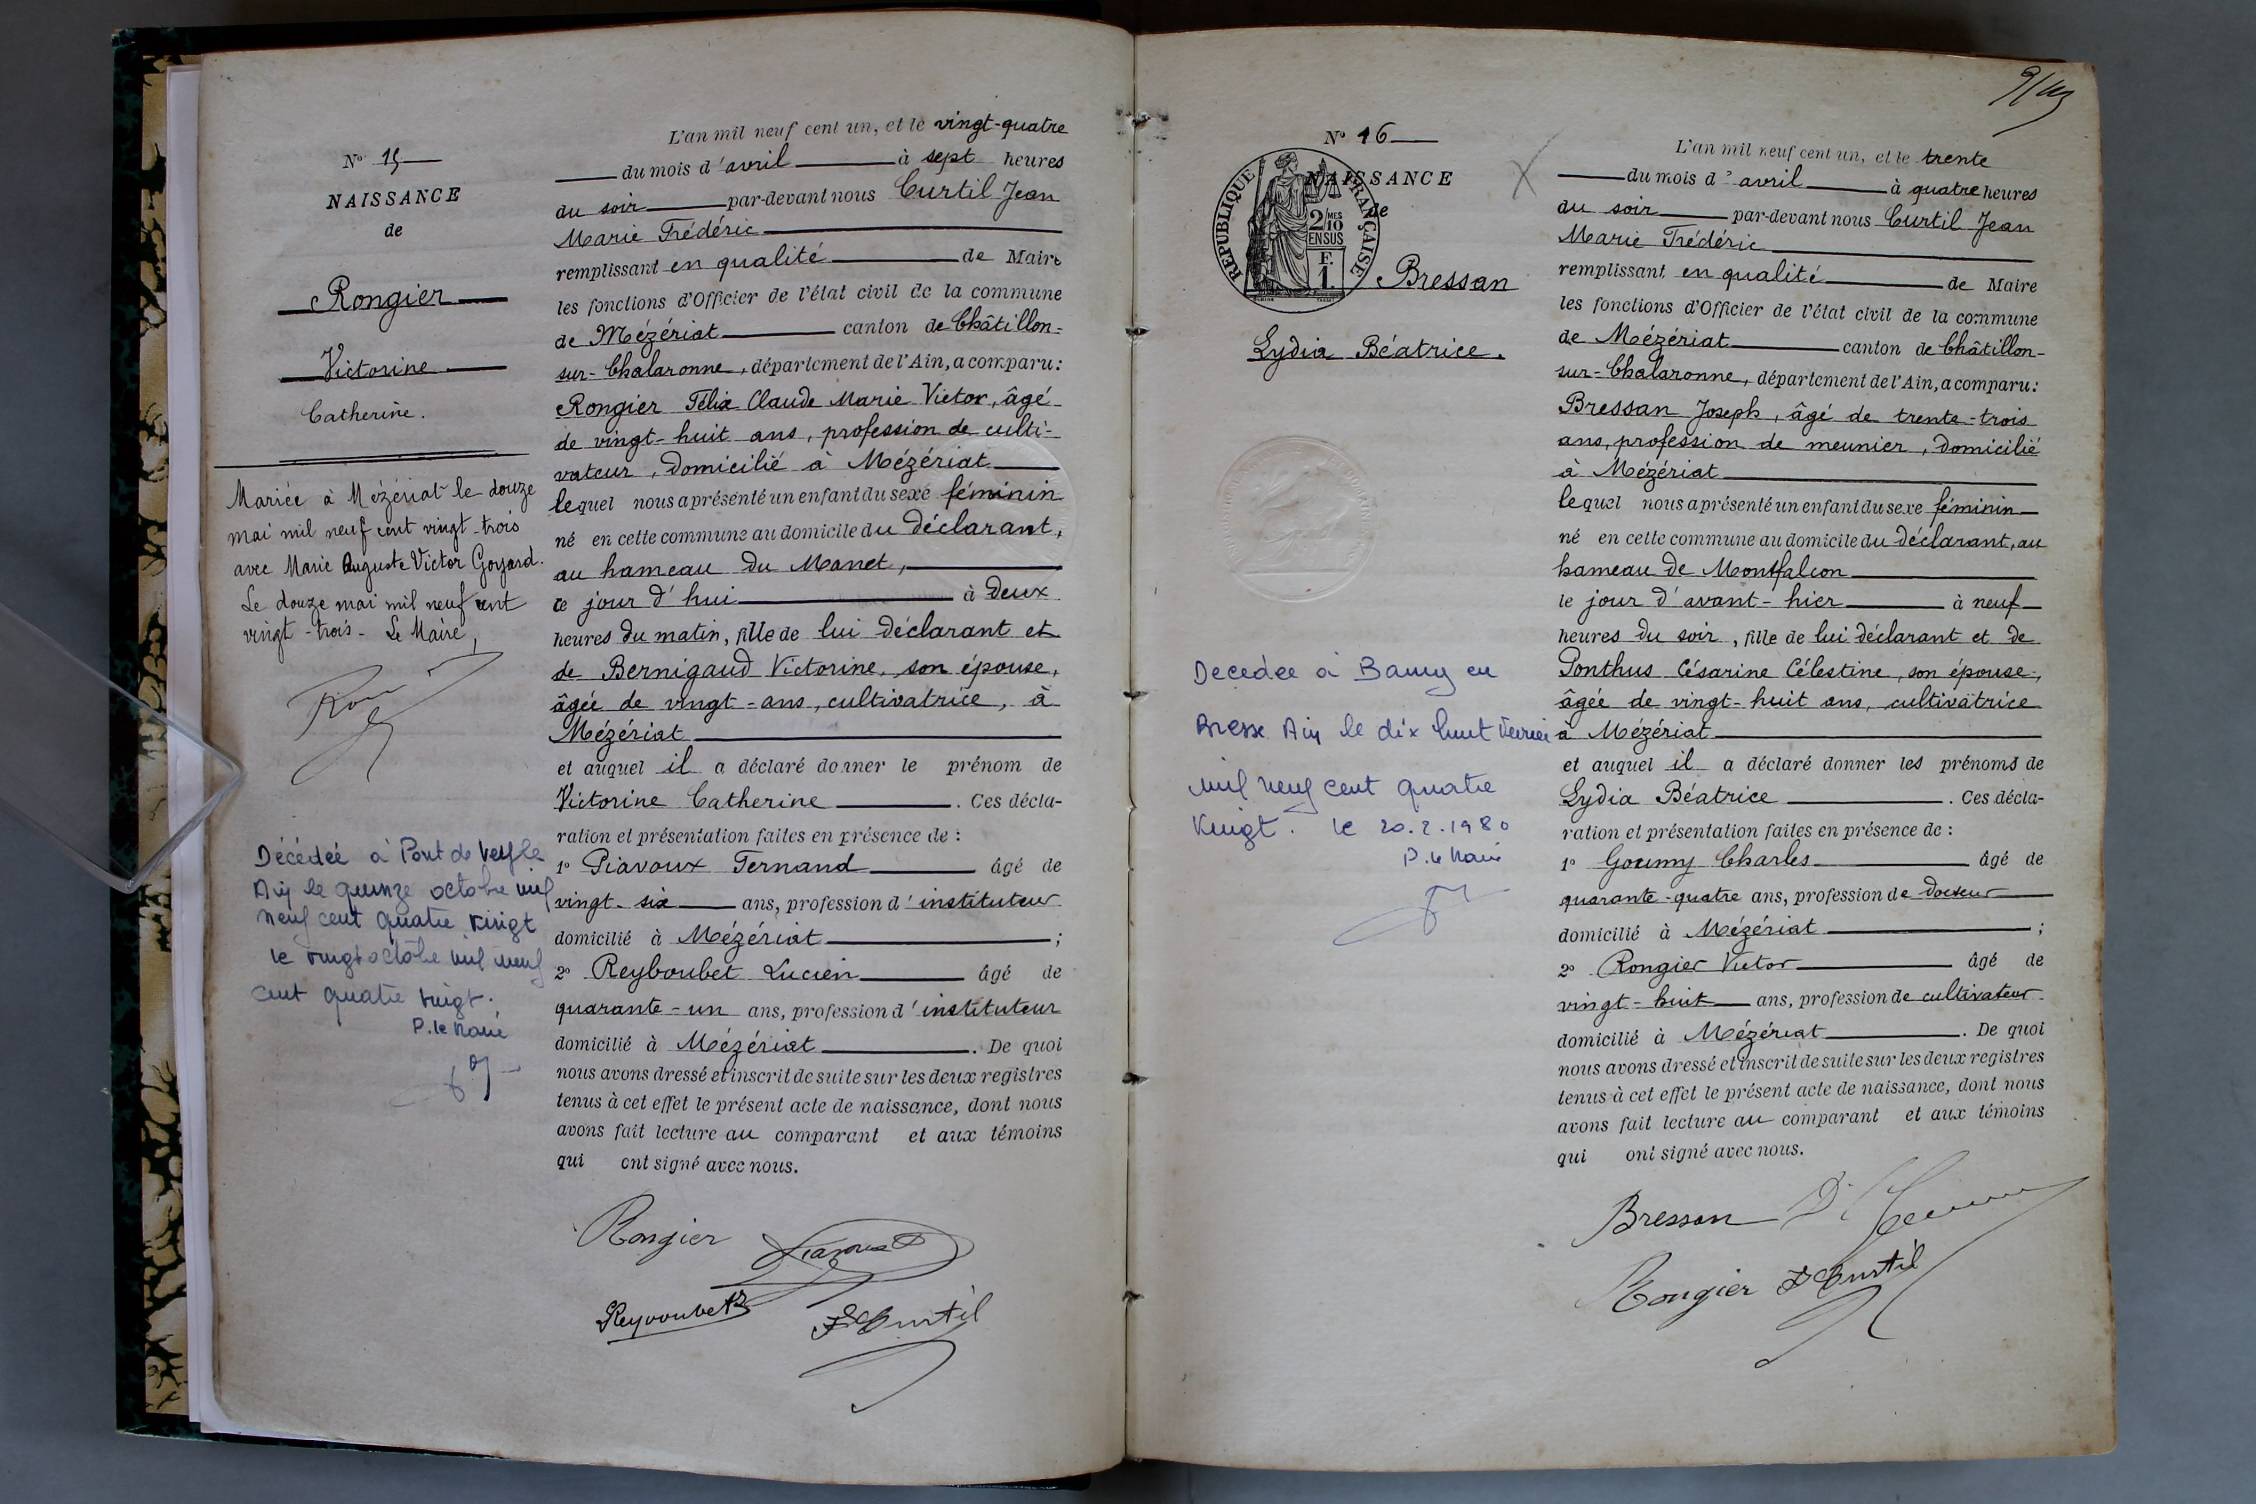 N° 15
NAISSANCE
de
Rongier
Victorine
Catherine.
Mariée à Mézériat le douze
mai mil neuf cent vingt-trois
avec Marie Auguste Victor Goyard.
Le douze mai mil neuf cent
vingt-trois- Le Maire,
Décédée à Pont de Veyle
Ain le quinze octobre mil
neuf cent quatre vingt
le vingt octobre mil neuf
cent quatre vingt.
P. le Maire
L'an mil neuf cent un, et le vingt-quatre
du mois d'avril à sept heures
du soir par-devant nous Curtil Jean
Marie Frédéric
remplissant en qualité de Maire
les fonctions d'Officier de l'état civil de la commune
de Mézériat canton de Châtillon-
sur-Chalaronne, département de l'Ain, a comparu:
Rongier Félix Claude Marie Victor, âgé
de vingt-huit ans, profession de culti-
vateur, domicilié à Mézériat
lequel nous a présenté un enfant du sexe féminin
né en cette commune au domicile du déclarant,
au hameau du Manet,
ce jour d'hui à deux
heures du matin, fille de lui déclarant et
de Bernigaud Victorine, son épouse,
âgée de vingt-ans, cultivatrice, à
Mézériat
et auquel il a déclaré donner le prénom de
Victorine Catherine . Ces décla-
ration et présentation faites en présence de :
1° Piavoux Fernand âgé de
vingt-six ans, profession d'instituteur
domicilié à Mézériat ;
2° Reyboubet Lucien âgé de
quarante-un ans, profession d'instituteur
domicilié à Mézériat . De quoi
nous avons dressé et inscrit de suite sur les deux registres
tenus à cet effet le présent acte de naissance, dont nous
avons fait lecture au comparant et aux témoins
qui ont signé avec nous.
Rongier Piavoux
Reyvoubet F Curtil
9/
N° 16
NAISSANCE
de
RÉPUBLIQUE FRANÇAISE
2/MES
10
EN SUS
F.
1.
Bressan
Lydia Béatrice.
Decedée à Bamy en
Bresse Ain le dix huit Février
mil neuf cent quatre
vingt. le 20.2.1980
P. le Maire
L'an mil neuf cent un, et le trente
du mois d'avril à quatre heures
du soir par-devant nous Curtil Jean
Marie Frédéric
remplissant en qualité de Maire
les fonctions d'Officier de l'état civil de la commune
de Mézériat canton de Châtillon-
sur-Chalaronne, département de l'Ain, a comparu:
Bressan Joseph, âgé de trente-trois
ans, profession de meunier, domicilié
à Mézériat
lequel nous a présenté un enfant du sexe féminin
né en cette commune au domicile du déclarant, au
hameau de Montfalcon
le jour d'avant-hier à neuf
heures du soir, fille de lui déclarant et de
Ponthus Césarine Célestine, son épouse,
âgée de vingt-huit ans, cultivatrice
à Mézériat
et auquel il a déclaré donner les prénoms de
Lydia Béatrice . Ces décla-
ration et présentation faites en présence de :
1° Goumy Charles âgé de
quarante-quatre ans, profession de docteur
domicilié à Mézériat ;
2° Rongier Victor âgé de
vingt-huit ans, profession de cultivateur
domicilié à Mézériat . De quoi
nous avons dressé et inscrit de suite sur les deux registres
tenus à cet effet le présent acte de naissance, dont nous
avons fait lecture au comparant et aux témoins
qui ont signé avec nous.
Bressan Dr Goumy
Rongier F Curtil